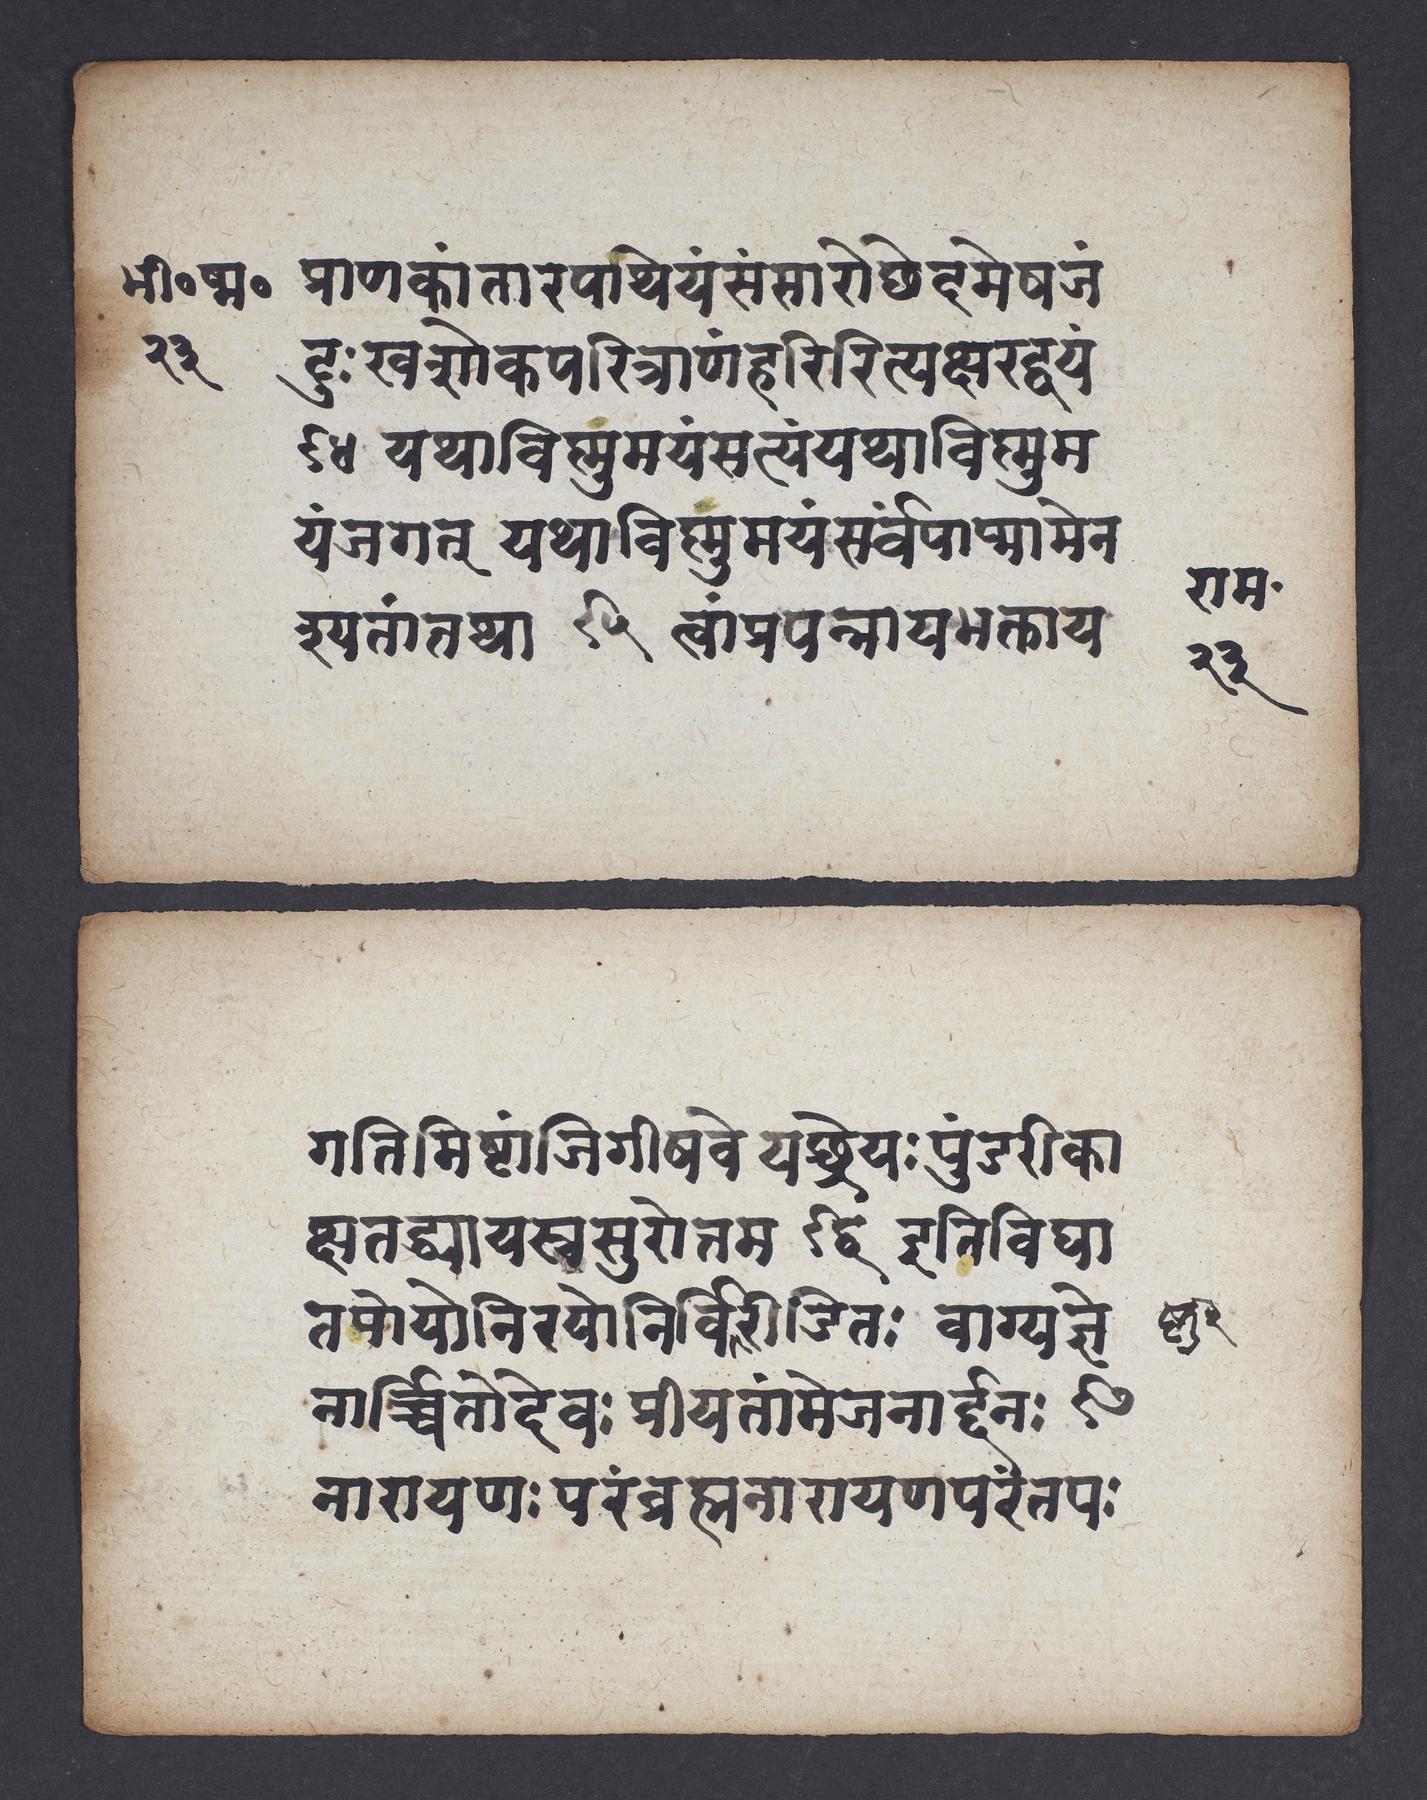 भी॰ष्म॰
२३
प्राणकांतारपाथेयंसंसारोछेदमेषजं
दुःखशोकपरित्राणंहरिरित्यक्षरद्वयं
९४ यथाविष्णुमयंसत्यंयथाविष्णुम
यंजगत् यथाविष्णुमयंसर्वंपाप्मामेन
श्यतांतथा ९५ त्वांप्रपन्नायभक्ताय
राम॰
२३
गतिमिष्टांजिगीषवे यछ्रेयःपुंडरीका
क्षतद्ध्यायस्वसुरोत्तम ९६ इतिविद्या
तपोयोनिरयोनिर्वि रीडितः वाग्यज्ञे
ष्णु२
नार्च्चितोदेवः प्रीयतांमेजनार्द्दनः ९७
नारायणः परंब्रह्मनारायणपरंतपः